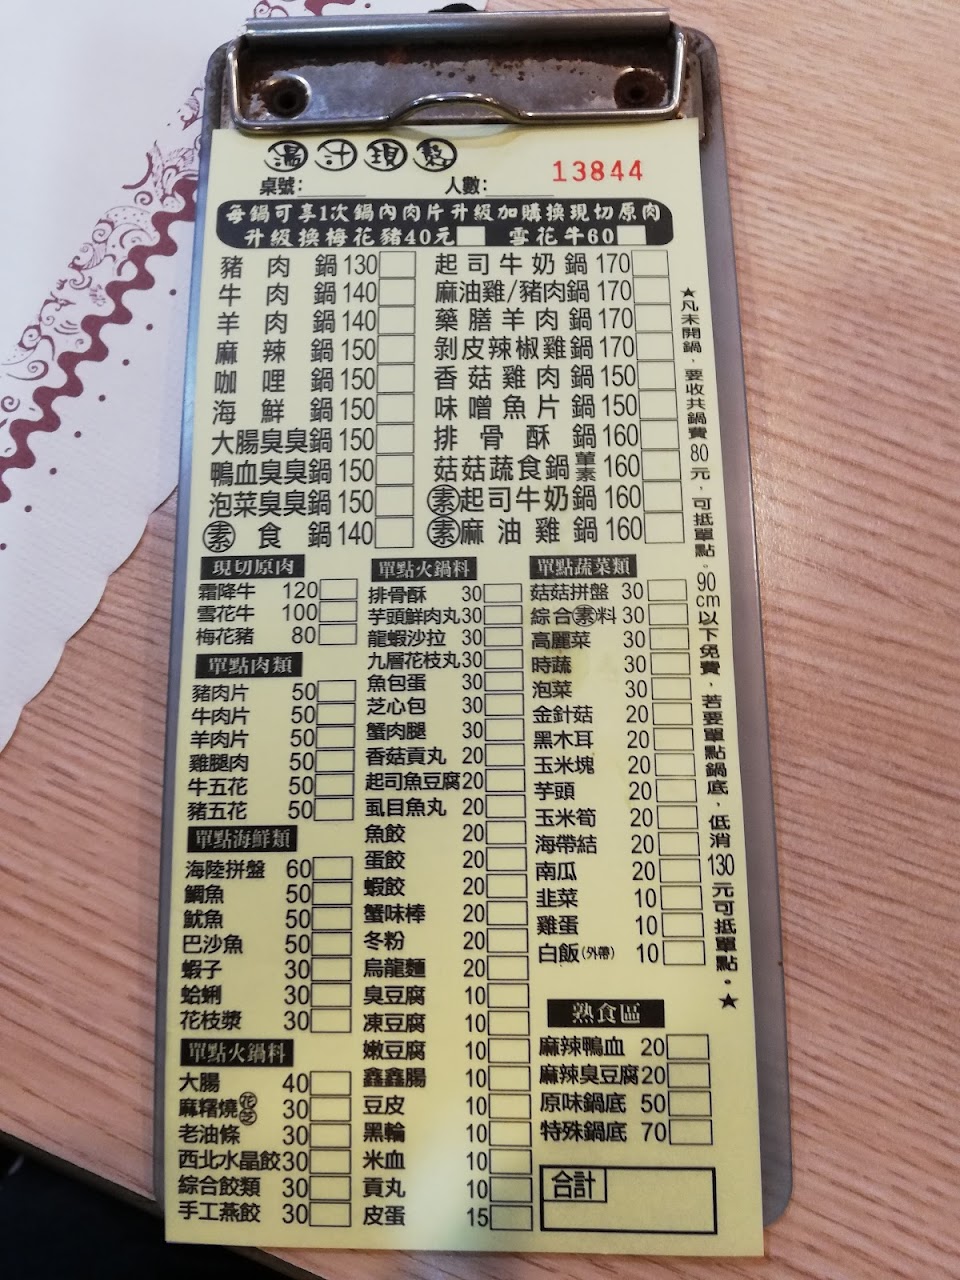 湯汁現熬
13844
桌號: 人數:
每鍋可享1次鍋內肉片升級加購換現切原肉
升級換梅花豬40元 雪花牛60
豬肉鍋130
牛肉鍋140
羊肉鍋140
麻辣鍋150
咖哩鍋150
海鮮鍋150
大腸臭臭鍋150
鴨血臭臭鍋150
泡菜臭臭鍋150
素食鍋140
起司牛奶鍋170
麻油雞/豬肉鍋170
藥膳羊肉鍋170
剝皮辣椒雞鍋170
香菇雞肉鍋150
味噌魚片鍋150
排骨酥鍋160
菇菇蔬食鍋葷素160
素起司牛奶鍋160
素麻油雞鍋160
現切原肉
霜降牛 120
雪花牛 100
梅花豬 80
單點肉類
豬肉片 50
牛肉片 50
羊肉片 50
雞腿肉 50
牛五花 50
豬五花 50
單點海鮮類
海陸拼盤 60
鯛魚 50
魷魚 50
巴沙魚 50
蝦子 30
蛤蜊 30
花枝漿 30
單點火鍋料
大腸 40
麻糬燒花芝 30
老油條 30
西北水晶餃30
綜合餃類 30
手工燕餃 30
單點火鍋料
排骨酥 30
芋頭鮮肉丸30
龍蝦沙拉 30
九層花枝丸30
魚包蛋 30
芝心包 30
蟹肉腿 30
香菇貢丸 20
起司魚豆腐20
虱目魚丸 20
魚餃 20
蛋餃 20
蝦餃 20
蟹味棒 20
冬粉 20
烏龍麵 20
臭豆腐 10
凍豆腐 10
嫩豆腐 10
鑫鑫腸 10
豆皮 10
黑輪 10
米血 10
貢丸 10
皮蛋 15
單點蔬菜類
菇菇拼盤 30
綜合素料 30
高麗菜 30
時蔬 30
泡菜 30
金針菇 20
黑木耳 20
玉米塊 20
芋頭 20
玉米筍 20
海帶結 20
南瓜 20
韭菜 10
雞蛋 10
白飯(外帶) 10
熟食區
麻辣鴨血 20
麻辣臭豆腐20
原味鍋底 50
特殊鍋底 70
合計
★凡未開鍋，要收共鍋費80元，可抵單點。90cm以下免費，若要單點鍋底，低消130元可抵單點。★